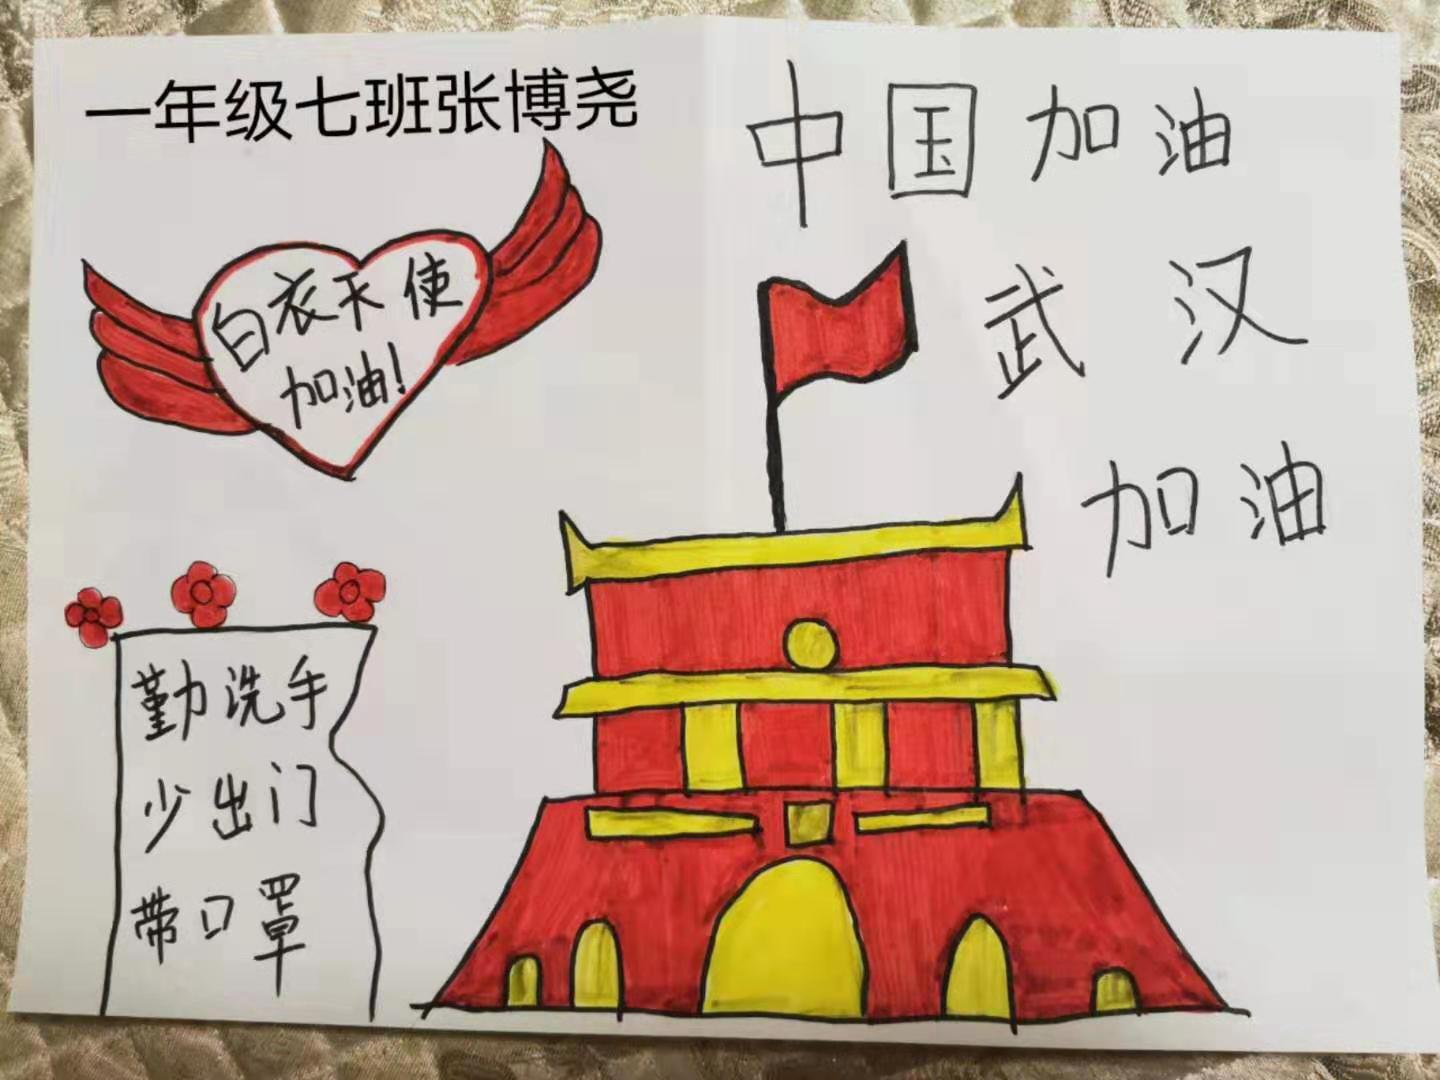 一年级七班张博尧
中国加油
武汉
加油
白衣天使
加油!
勤洗手
少出门
带口罩